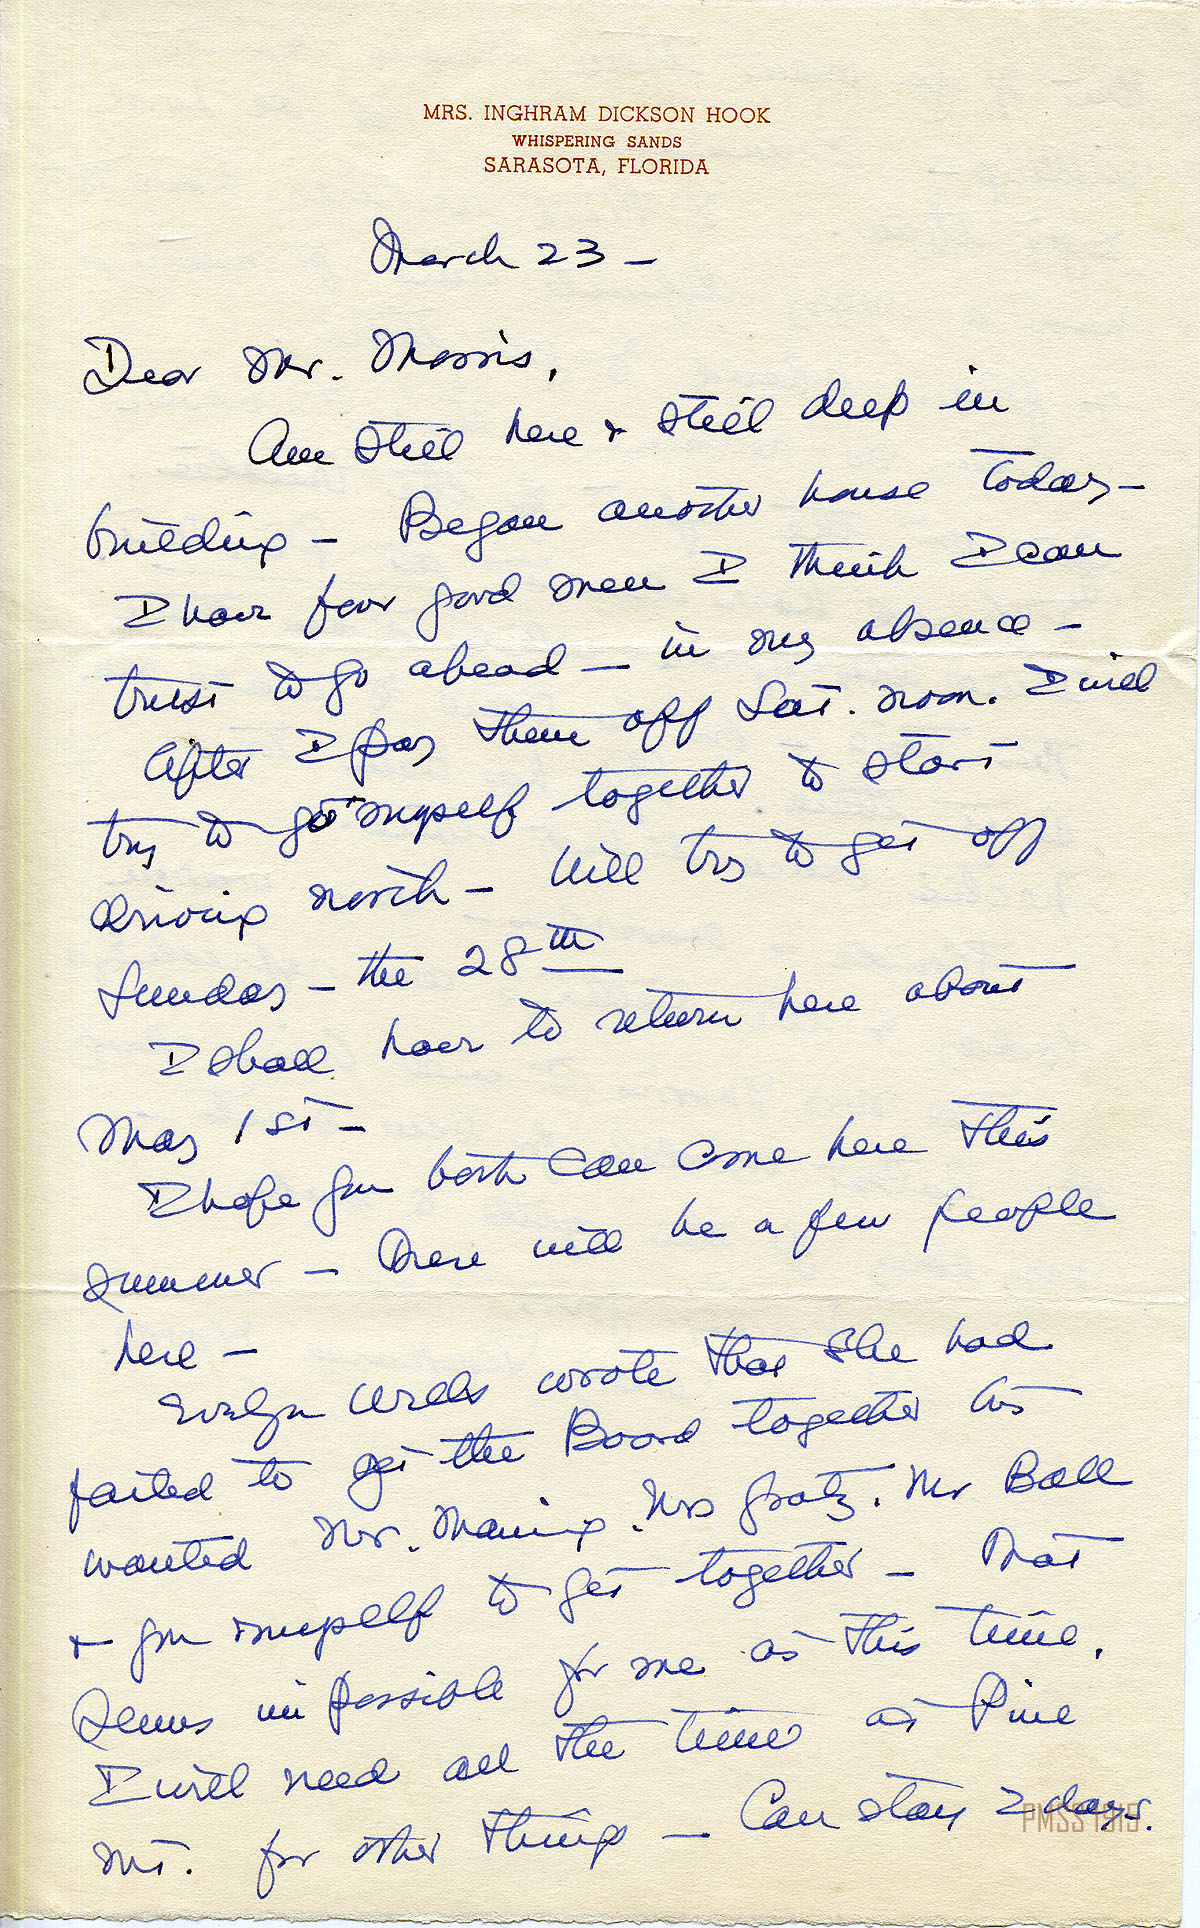 MRS. INGHRAM DICKSON HOOK
WHISPERING SANDS
SARASOTA, FLORIDA
March 23 —
Dear Mr. Morris,
Am still here & still deep in
building — Began another house today —
I have four good men I think I can
trust to go ahead — in my absence —
After I pay them off Sat. noon. I will
try to get myself together to start
driving north — Will try to get off
Sunday — the 28th
I shall have to return here about
May 1st —
I hope you both can come here this
summer — There will be a few people
here —
Evelyn Wells wrote that she had
failed to get the Board together as
wanted Mr. Maning. Mrs Gratz. Mr Ball
& you & myself to get together — That
seems impossible for me at this time.
I will need all the time at Pine
Mt. for other things — Can stay 2 days.
PMSS 1919